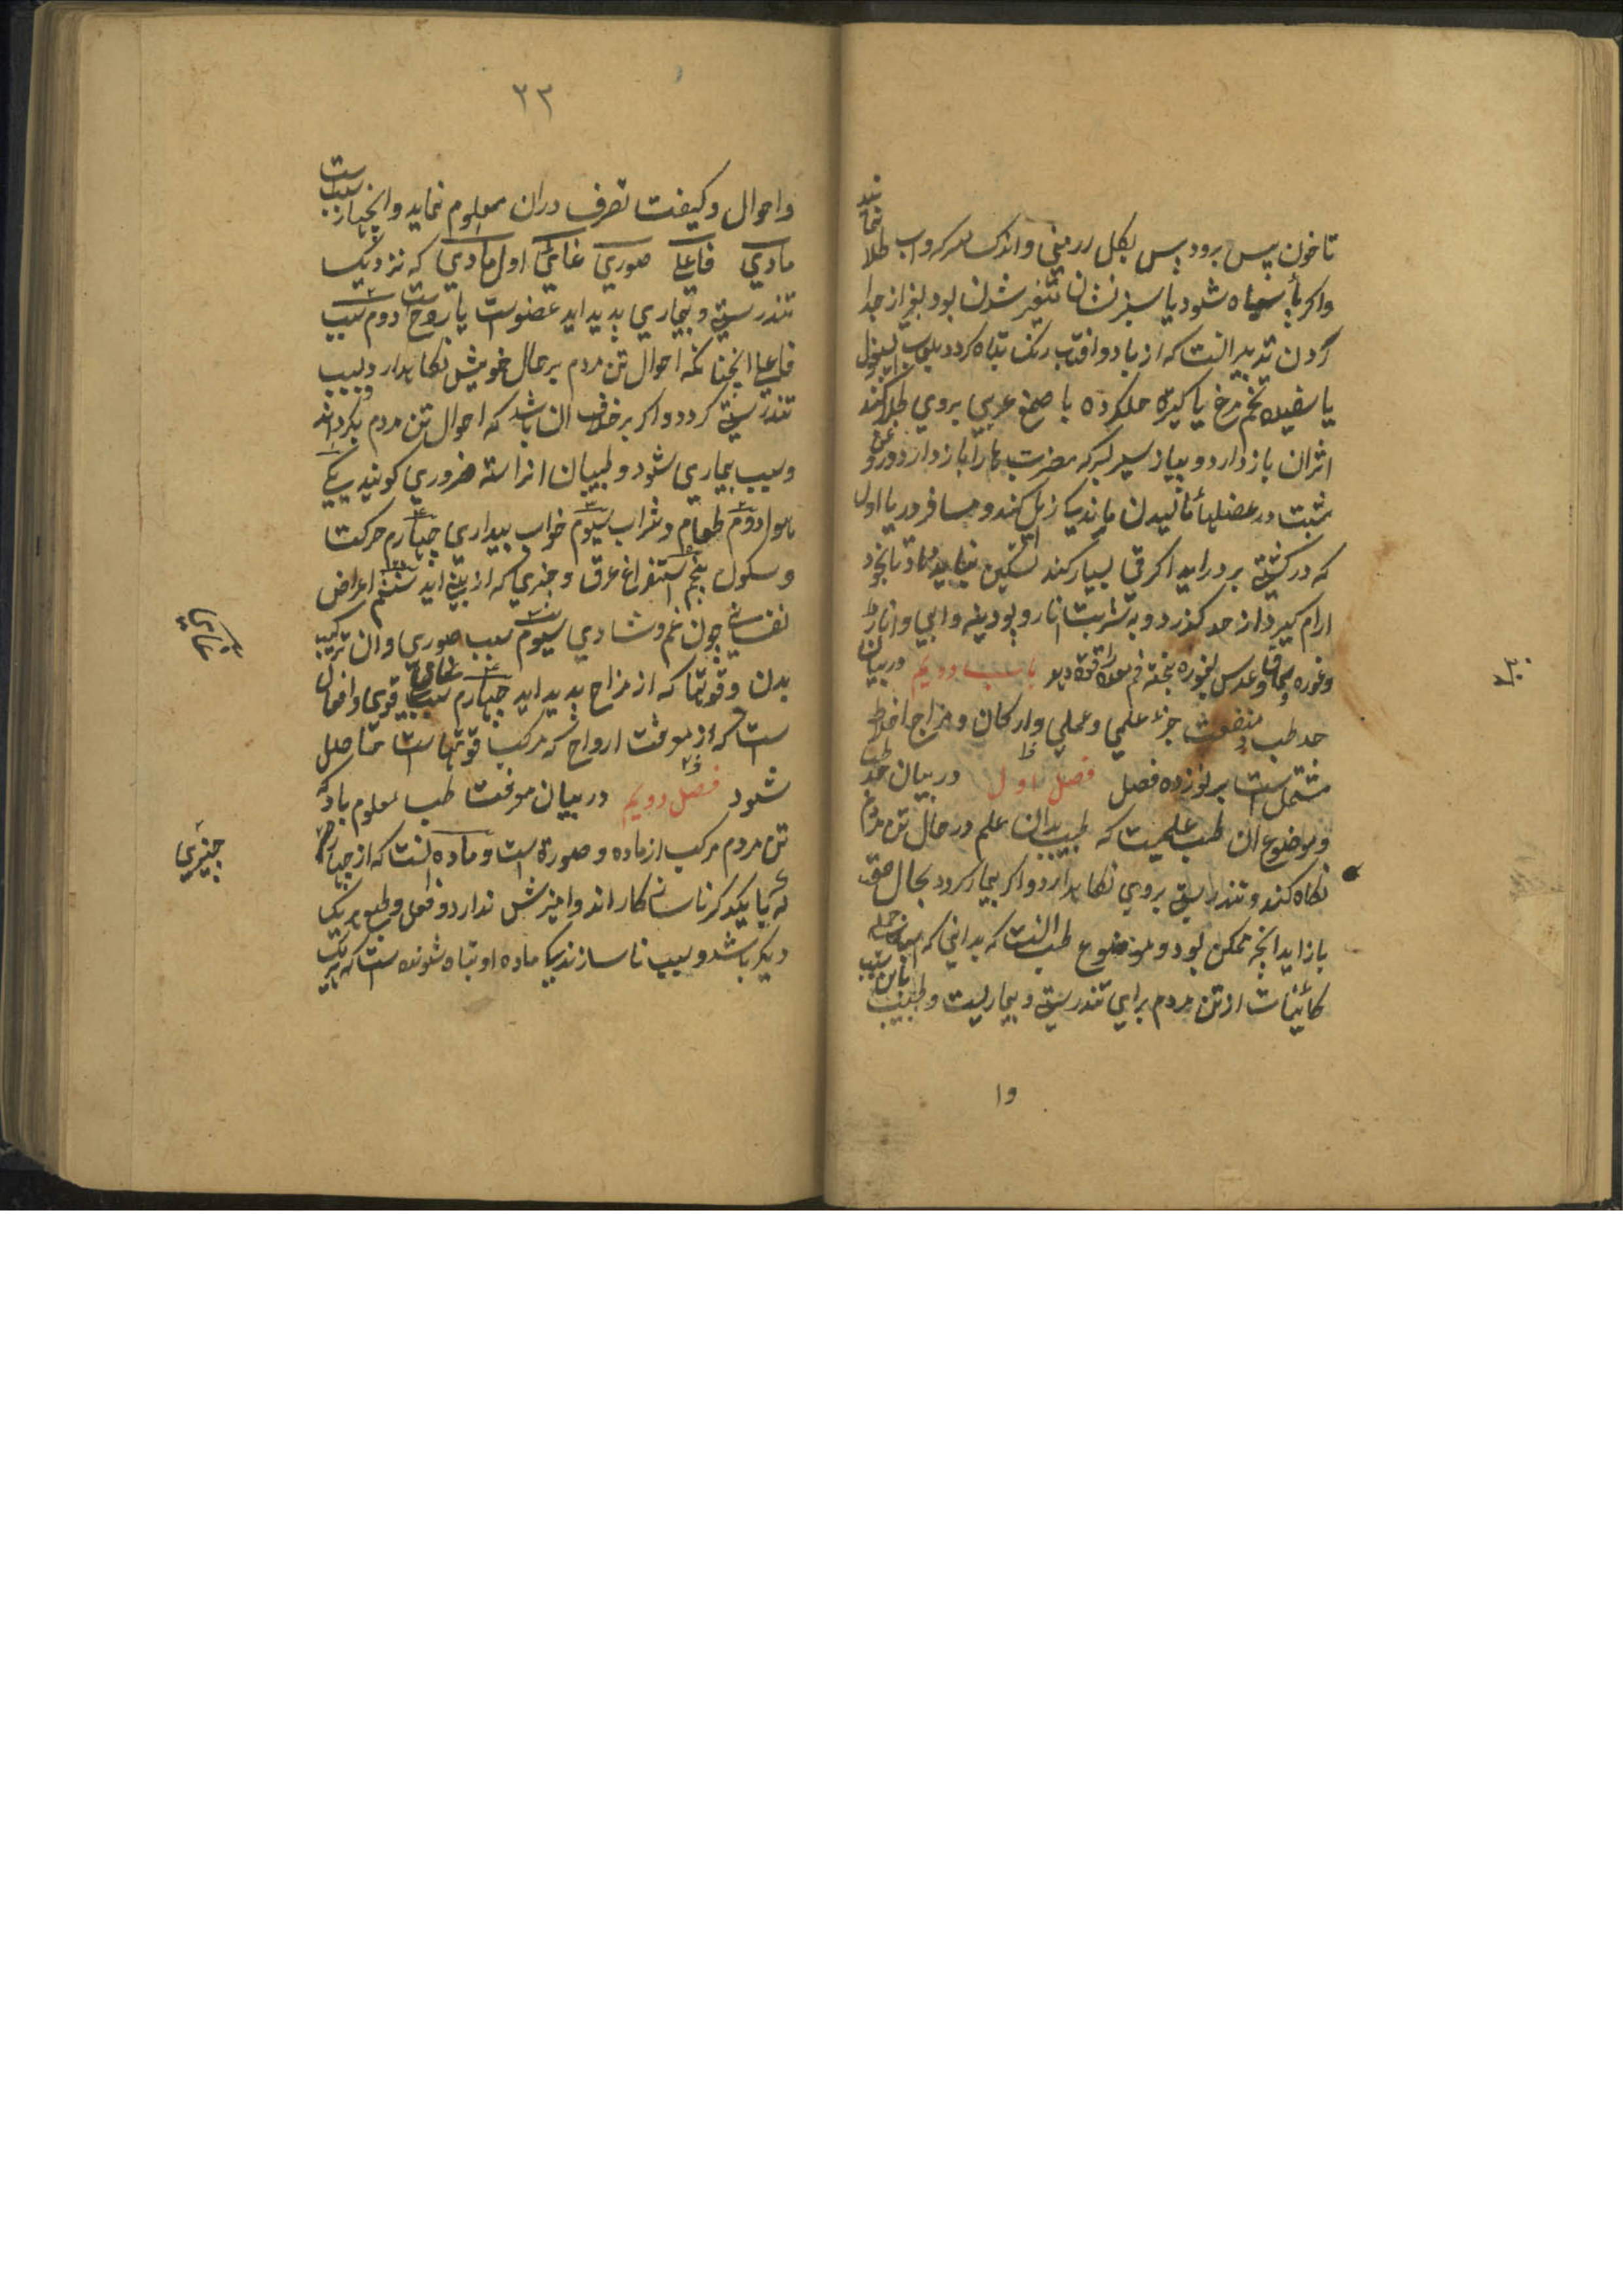 تا خون پس برود پس بکل ارمنی واندک سرکه واب طلا نمایند
واکر پا سیاه شود یا سبز نشان متغیر شدن بود بغیر از جدا
کردن تدبیر النست که از باد وافتاب رنک تباه کردد بلعاب اسپغول
یا سفیده تخم مرغ یا کتیره حلکرده با صمغ عربی بروی طلا کنند
اثران باز دارد و پیاز سیر بسرکه مضرت را باز دارد و روغن
بنفشه در مالیدن کند و مسافر دریا اول
که در کشتی بر دراید اکر قی بسیار کند تسکین نباید داد تا بخود
ارام کیرد از حد کذرد و به شربت انار و پودینه وابی وانار
وغوره سماق وعدس بغوره پخته فم معده را قوة دهد باب دویم در بیان
حد طب منفعت جزء علمی وعملی وارکان و مزاج اخلاط
مشتمل ست بر نوزده فصل فصل اول در بیان حد طب
وموضوع ان طب علمیست که طبیب بدان علم در حال تن مردم
نکاه کند و تندرستی بروی نکاه دارد واکر بیمار کردد بحال صحت
باز اید انچه ممکن بود و موضوع طب النست که بدانی که جمله
کائینات از تن مردم برای تندرستی و بیماریست و طبیب
وا
٣٣
واحوال وکیفیت تصرف دران معلوم نماید وانچهار سبب است
مادی فاعلی صوری غائی اول مادی که نزدیک
تندرستی و بیماری پدید اید عضوست یا روح ست دوم سبب
فاعلی انچنانکه احوال تن مردم بر حال خویش نکاهدارد و سبب
تندرستی کردد واکر برخلاف ان باشد که احوال تن مردم بکرداند
وسبب بیماری شود و طبیبان انرا سته ضروری کویند یکی
هوا دوم طعام و شراب سیوم خواب بیداری چهارم حرکت
وسکون پنجم استفراغ عرق و چیزی که از بینی اید ششم اعراض
نفسانی چون غم و شادی سیوم سبب صوری وان ترکیب
بدن و قوتها که از مزاج پدید اید چهارم سبب غائی قوی وافعال
ست که از معرفت ارواح که مرکب قوتها ست حاصل
شود فصل دویم در بیان معرفت طب معلوم باد که
تن مردم مرکب از ماده و صورة است و ماده النست که از چهار
که با یکدکر ناسازکار اند وامیزش ندارد و فعل و طبع هر یک
دیکر باشد و سبب ناسازندکی ماده او تباه شونده ست که هر یک
چیزی